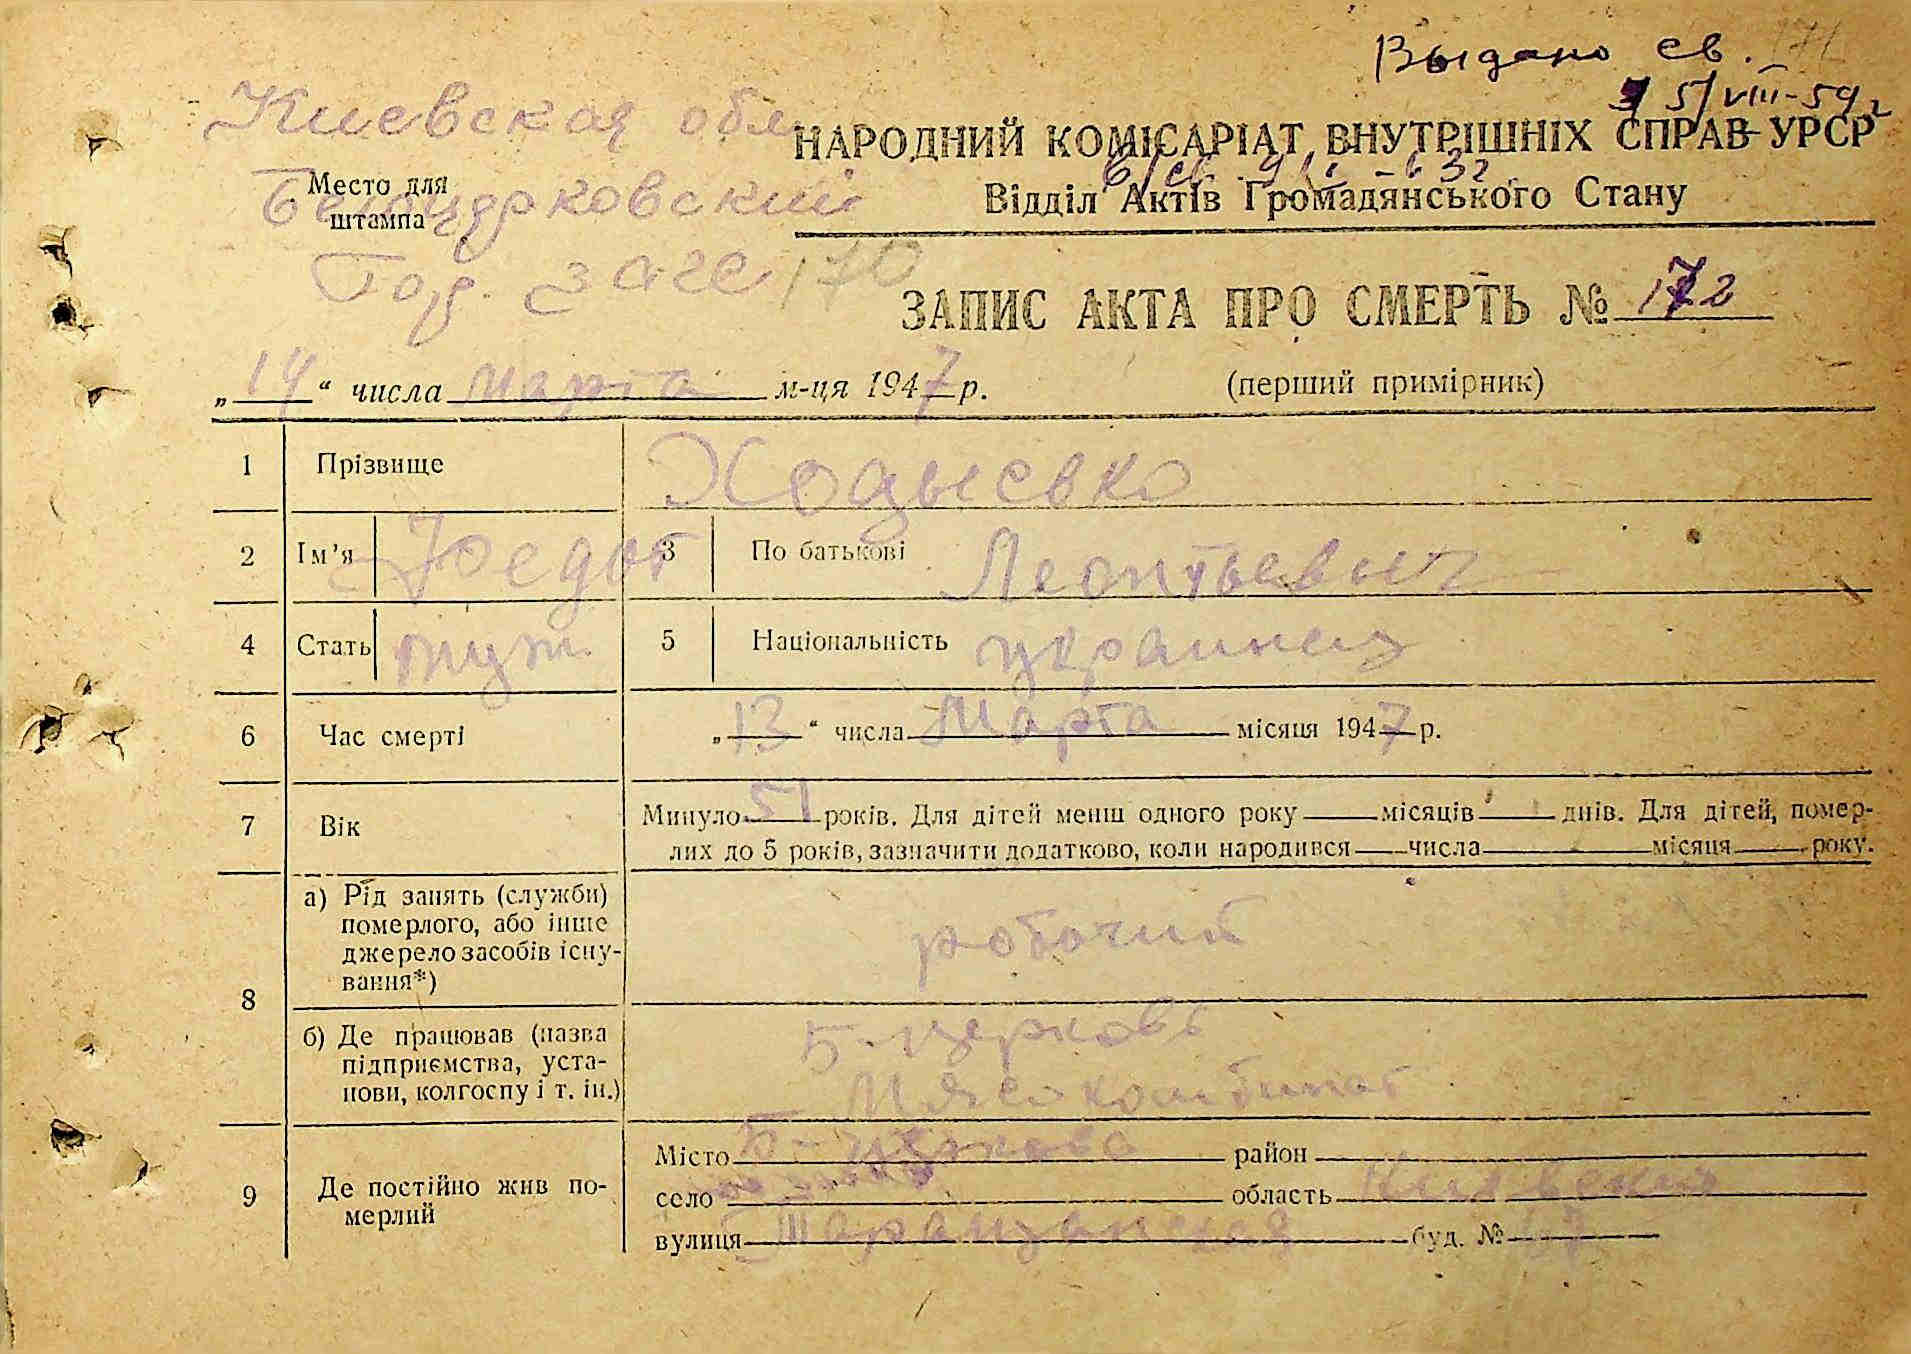 Выдано св. 171
5/VIII-59 г
Киевская обл
НАРОДНИЙ КОМІСАРІАТ ВНУТРІШНІХ СПРАВ УРСР
Место для штампа
Белоцерковский
Відділ Актів Громадянського Стану
Гор. загс 170
ЗАПИС АКТА ПРО СМЕРТЬ № 172
„14“ числа марта м-ця 1947 р.
(перший примірник)
1 Прізвище Ходысвко
2 Ім'я Федот 3 По батькові Леонтьевич
4 Стать муж. 5 Національність украинец
6 Час смерті „13“ числа Марта місяця 1947 р.
7 Вік Минуло 51 років. Для дітей менш одного року місяців днів. Для дітей, помер-
лих до 5 років, зазначити додатково, коли народився числа місяця року.
8 а) Рід занять (служби)
померлого, або інше
джерело засобів існу-
вання*)
робочий
б) Де працював (назва
підприємства, уста-
нови, колгоспу і т. ін.)
Б-церковь
Мясокомбинат
9 Де постійно жив по-
мерлий
Місто Б-церковь район
село область Киевский
вулиця Таращанская буд. № 47